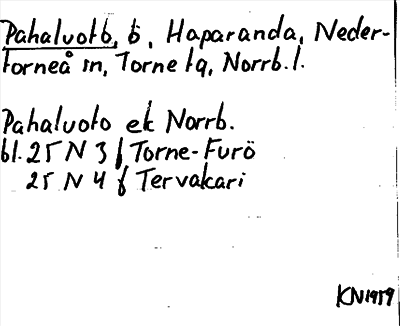 Pahaluoto, ö, Haparanda, Neder-
torneå sn, Torne tg, Norrb. l.
Pahaluoto ek Norrb.
bl. 25 N 3 f Torne-Furö
25 N 4 f Tervakari
KN 1959